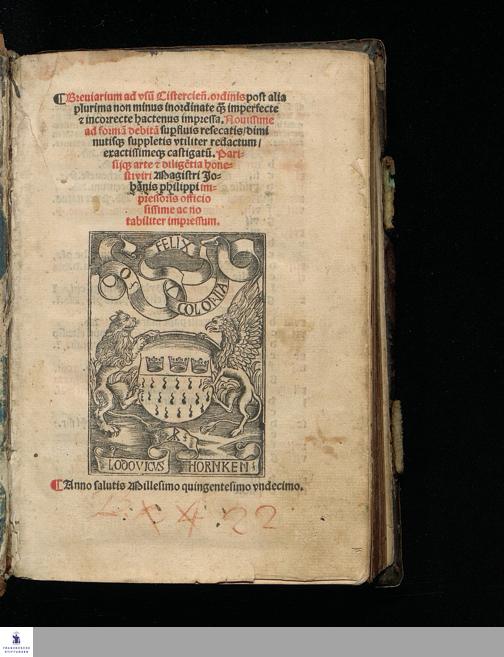 ¶Breuiarium ad vsū Cistercień. ordinis post alia
plurima non minus inordinate q̄ȝ imperfecte
⁊ incorrecte hactenus impressa. Nouissime
ad formā debitā supfluis resecatis/dimi
nutisqȝ suppletis vtiliter redactum/
exactissimeqȝ castigatū. Pari-
sijqȝ arte ⁊ diligētia hone-
sti viri Magistri Jo-
hānis philippi im-
pressoris officio
sissime ac no
tabiliter impressum.
O FELIX
COLONIA
LODOVICVS HORNKEN
¶Anno salutis Millesimo quingentesimo vndecimo.
FRANCKESCHE
STIFTUNGEN